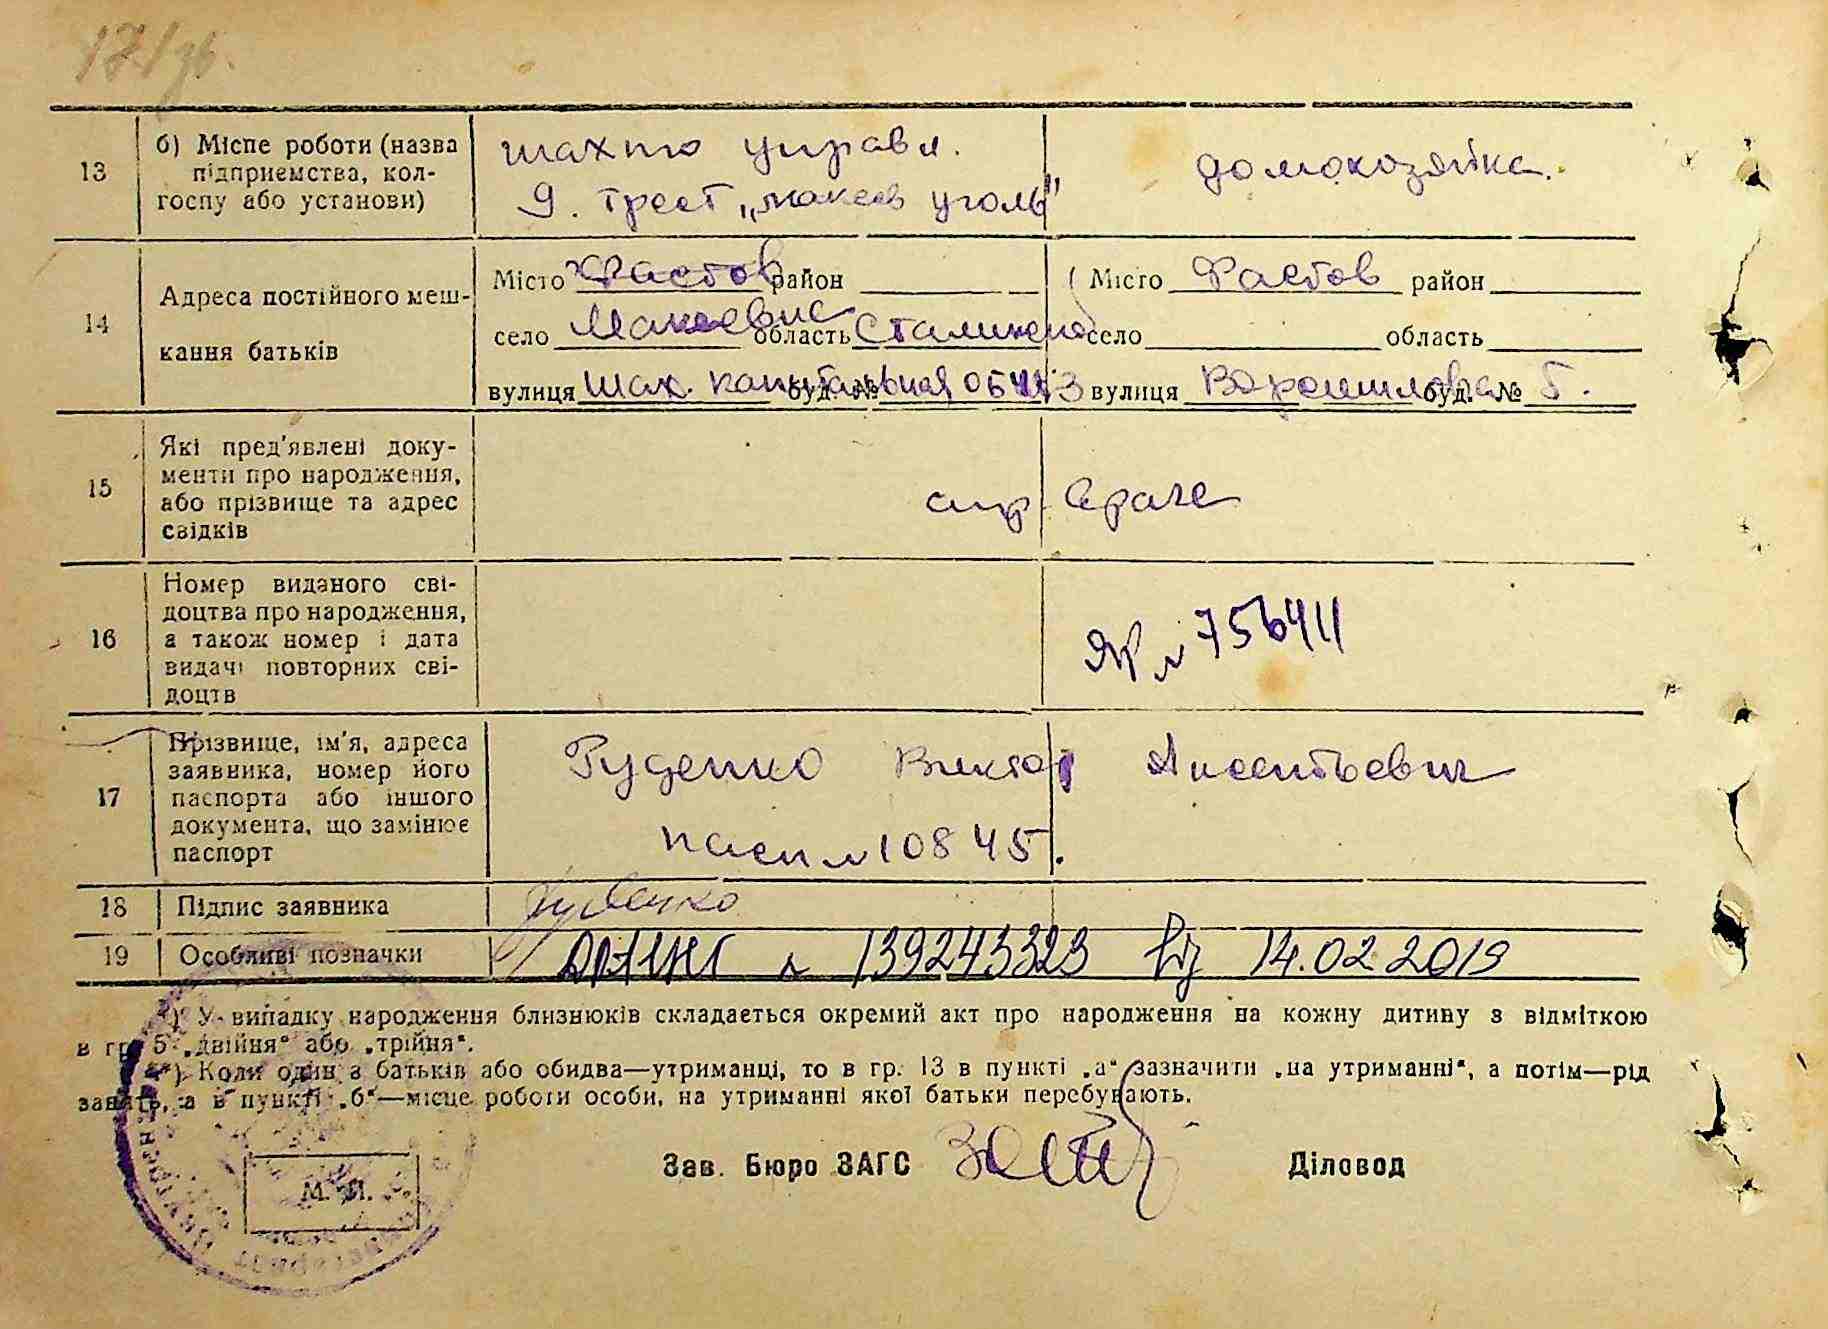 171 зв.
13
б) Місце роботи (назва
підприємства, кол-
госпу або установи)
шахто управл.
9. трест „макеев уголь"
домохозяйка.
14
Адреса постійного меш-
кання батьків
Місто Фастов район
село Макаевка область Сталинско
вулиця шах. капитальная буд. №
Місто Фастов район
село область
вулиця Ворошилова буд. № 5.
15
Які пред'явлені доку-
менти про народження,
або прізвище та адрес
свідків
спр. врача
16
Номер виданого сві-
доцтва про народження,
а також номер і дата
видачі повторних сві-
доцтв
ЯР № 756411
17
Прізвище, ім'я, адреса
заявника, номер його
паспорта або іншого
документа, що замінює
паспорт
Руденко Виктор Аксентьевич
пасп № 10845.
18
Підпис заявника
Руденко
19
Особливі позначки
№ 139243323 від 14.02.2019
*) У випадку народження близнюків складається окремий акт про народження на кожну дитину з відміткою
в гр. 5 „двійня“ або „трійня“.
**) Коли один з батьків або обидва—утриманці, то в гр. 13 в пункті „а“ зазначити „на утриманні“, а потім—рід
занять, а в пункті „б“—місце роботи особи, на утриманні якої батьки перебувають.
Зав. Бюро ЗАГС
Діловод
М. П.